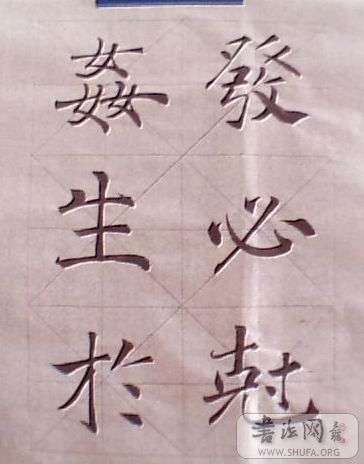 發必尅
姦生於
書法网
WWW.SHUFA.ORG